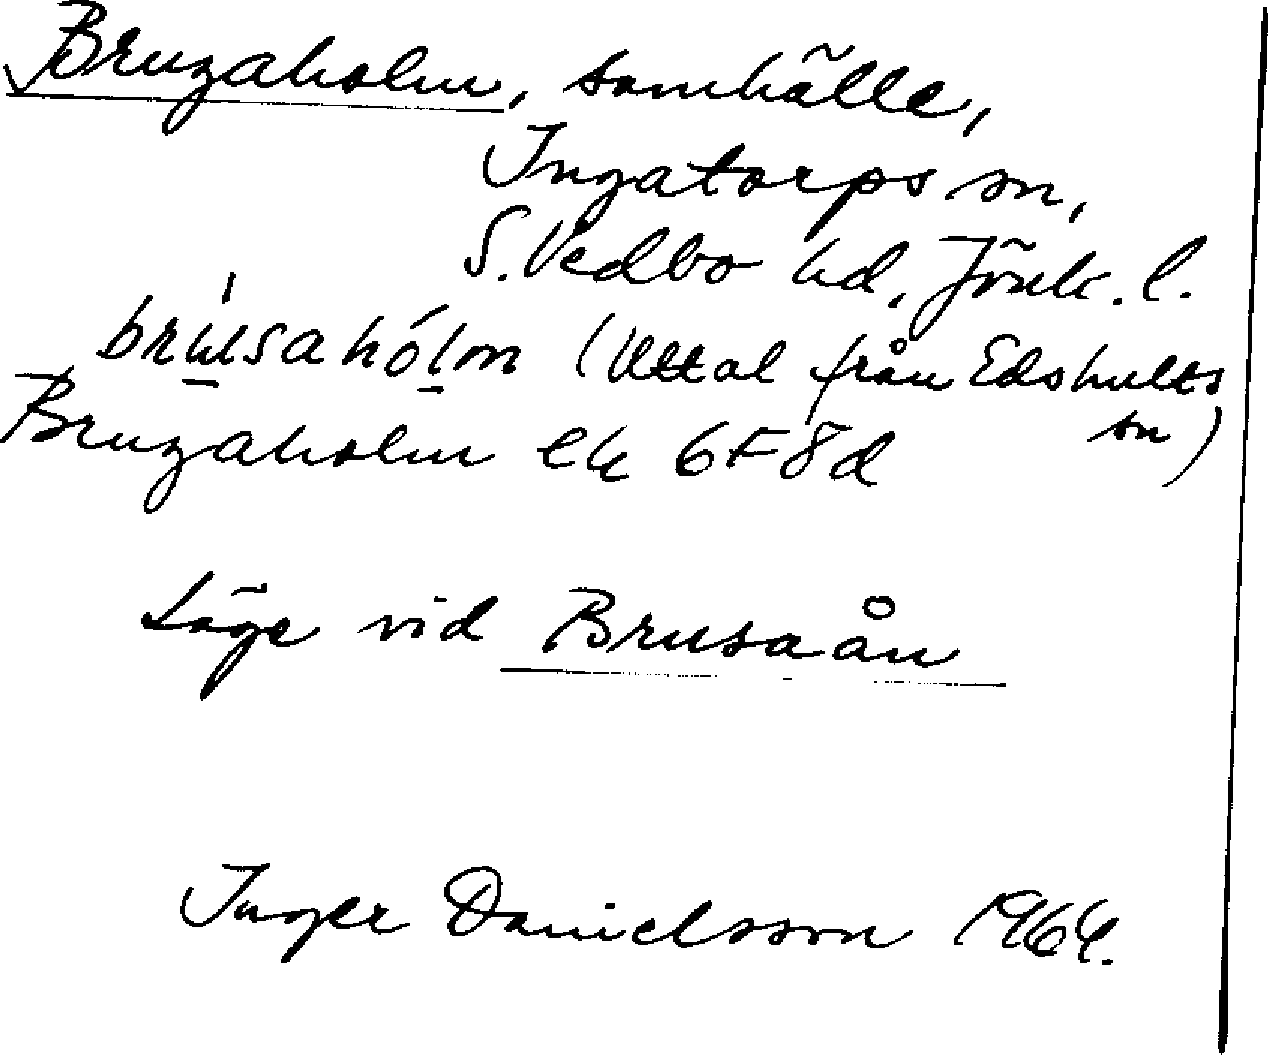 Bruzaholm, samhälle,
Ingatorps sn,
S. Vedbo hd, Jönk. l.
brúsahólm (Uttal från Edshults sn)
Bruzaholm ek 6F8d
Läge vid Brusaån
Inger Danielsson 1964.